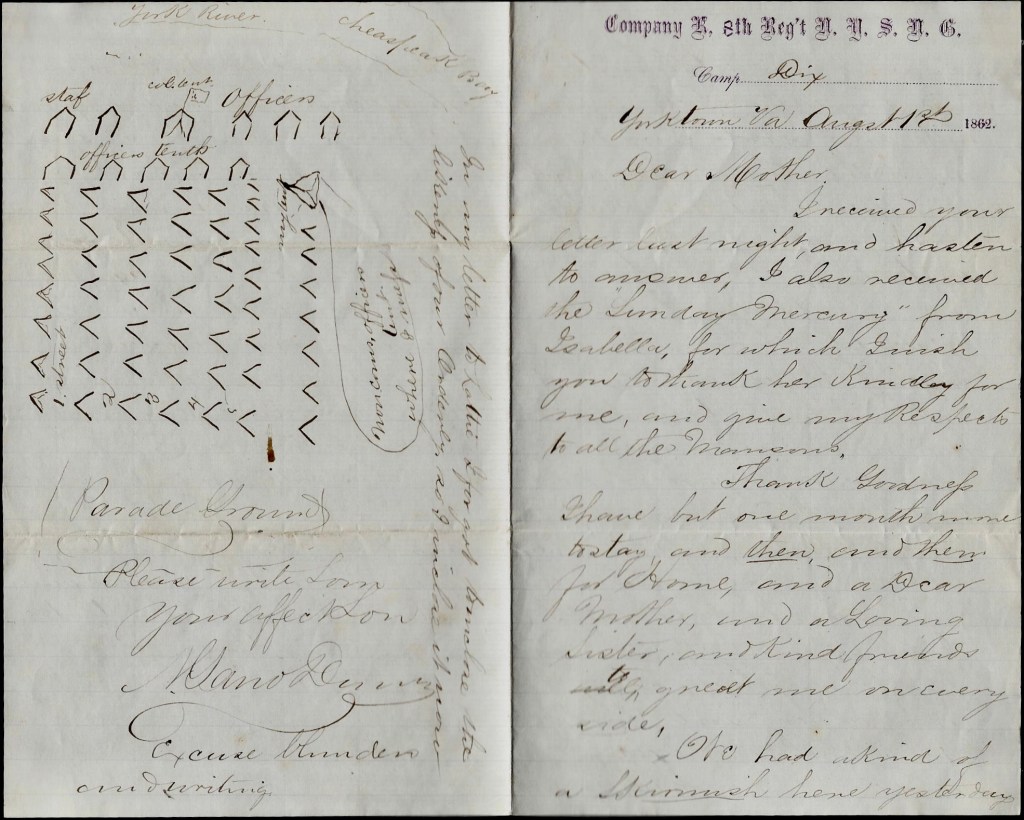 York River.
Cheaspeak Bay
staf
col. tent
Officers
officers tents
1. street
2
3
4
5
Parade Ground
Please write soon
Your affect Son
Excuse blunders
and writing
In my letter to Hattie I forgot to inclose the
listenfs of our Orderly, so I inclose it now
Company K, 8th Reg't N. Y. S. N. G.
Camp Dix
Yorktown Va Augst 1st 1862.
Dear Mother.
I received your
letter last night, and hasten
to answer, I also received
the "Sunday Mercury" from
Isabella, for which I wish
you to thank her Kindley for
me, and give my Respects
to all the Mansons.
Thank Goodness
I have but one month more
to stay, and then, and then
for Home, and a Dear
Mother, and a Loving
Sister, and Kind friends
to greet me on every
side,
We had a kind of
a Skirmish here yesterday